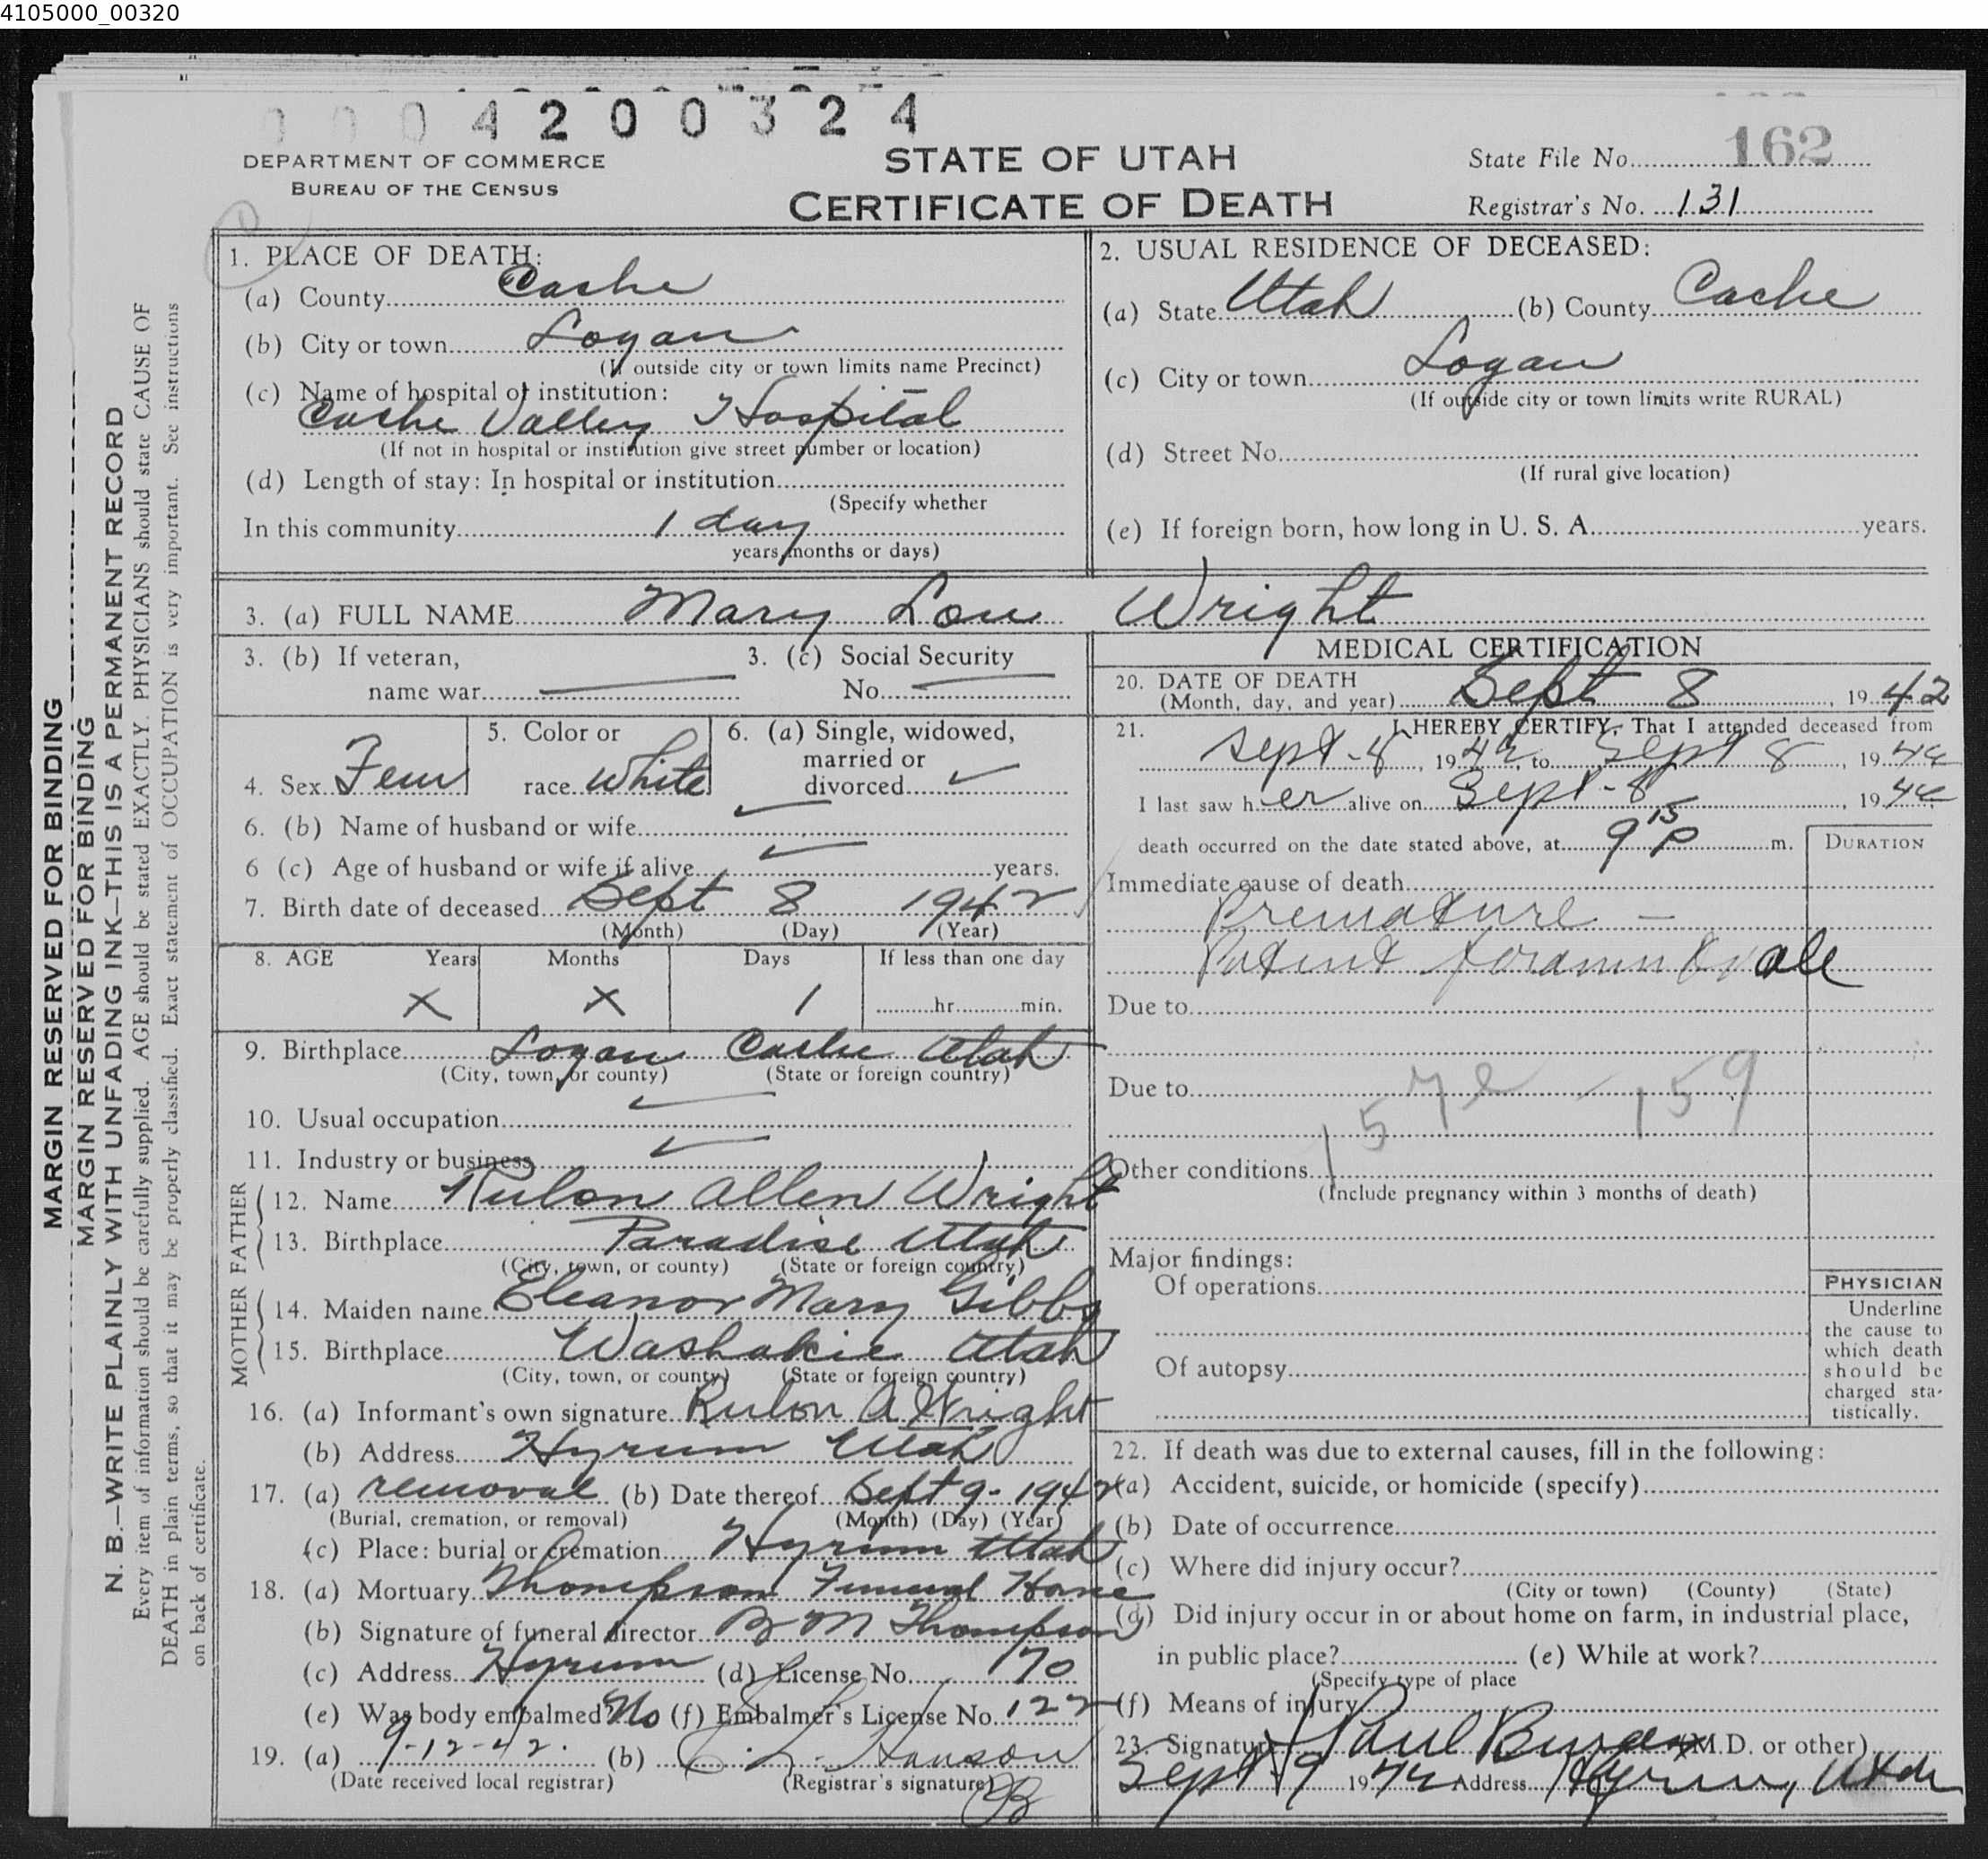 4105000_00320
0 0 0 4 2 0 0 3 2 4
DEPARTMENT OF COMMERCE
BUREAU OF THE CENSUS
STATE OF UTAH
CERTIFICATE OF DEATH
State File No. 162
Registrar's No. 131
MARGIN RESERVED FOR BINDING
MARGIN RESERVED FOR BINDING
N. B.—WRITE PLAINLY WITH UNFADING INK—THIS IS A PERMANENT RECORD
Every item of information should be carefully supplied. AGE should be stated EXACTLY. PHYSICIANS should state CAUSE OF
DEATH in plain terms, so that it may be properly classified. Exact statement of OCCUPATION is very important. See instructions
on back of certificate.
1. PLACE OF DEATH:
(a) County Cache
(b) City or town Logan
(If outside city or town limits name Precinct)
(c) Name of hospital or institution:
Cache Valley Hospital
(If not in hospital or institution give street number or location)
(d) Length of stay: In hospital or institution
(Specify whether
In this community 1 day
years, months or days)
2. USUAL RESIDENCE OF DECEASED:
(a) State Utah (b) County Cache
(c) City or town Logan
(If outside city or town limits write RURAL)
(d) Street No.
(If rural give location)
(e) If foreign born, how long in U. S. A. years.
3. (a) FULL NAME Mary Lou Wright
3. (b) If veteran,
name war
3. (c) Social Security
No.
4. Sex Fem
5. Color or
race White
6. (a) Single, widowed,
married or
divorced
6. (b) Name of husband or wife
6 (c) Age of husband or wife if alive years.
7. Birth date of deceased Sept 8 1942
(Month) (Day) (Year)
8. AGE Years Months Days If less than one day
X X 1 hr. min.
9. Birthplace Logan Cache Utah
(City, town, or county) (State or foreign country)
10. Usual occupation
11. Industry or business
FATHER
12. Name Rulon Allen Wright
13. Birthplace Paradise Utah
(City, town, or county) (State or foreign country)
MOTHER
14. Maiden name Eleanor Mary Gibbs
15. Birthplace Washakie Utah
(City, town, or county) (State or foreign country)
16. (a) Informant's own signature Rulon A Wright
(b) Address Hyrum Utah
17. (a) removal (b) Date thereof Sept 9 - 1942
(Burial, cremation, or removal) (Month) (Day) (Year)
(c) Place: burial or cremation Hyrum Utah
18. (a) Mortuary Thompson Funeral Home
(b) Signature of funeral director B M Thompson
(c) Address Hyrum (d) License No. 170
(e) Was body embalmed? No (f) Embalmer's License No. 122
19. (a) 9-12-42. (b) Hanson
(Date received local registrar) (Registrar's signature)
MEDICAL CERTIFICATION
20. DATE OF DEATH
(Month, day, and year) Sept 8, 1942
21. I HEREBY CERTIFY, That I attended deceased from
Sept - 8, 1942, to Sept 8, 1942
I last saw her alive on Sept - 8, 1942
death occurred on the date stated above, at 9 15 P m.
DURATION
Immediate cause of death
Premature -
Patent foramen Ovale
Due to
Due to
157e - 159
Other conditions
(Include pregnancy within 3 months of death)
Major findings:
Of operations
Of autopsy
PHYSICIAN
Underline
the cause to
which death
should be
charged sta-
tistically.
22. If death was due to external causes, fill in the following:
(a) Accident, suicide, or homicide (specify)
(b) Date of occurrence
(c) Where did injury occur?
(City or town) (County) (State)
(d) Did injury occur in or about home on farm, in industrial place,
in public place? (e) While at work?
(Specify type of place
(f) Means of injury
23. Signature Paul (M.D. or other)
Sept 9 1942 Address Hyrum, Utah